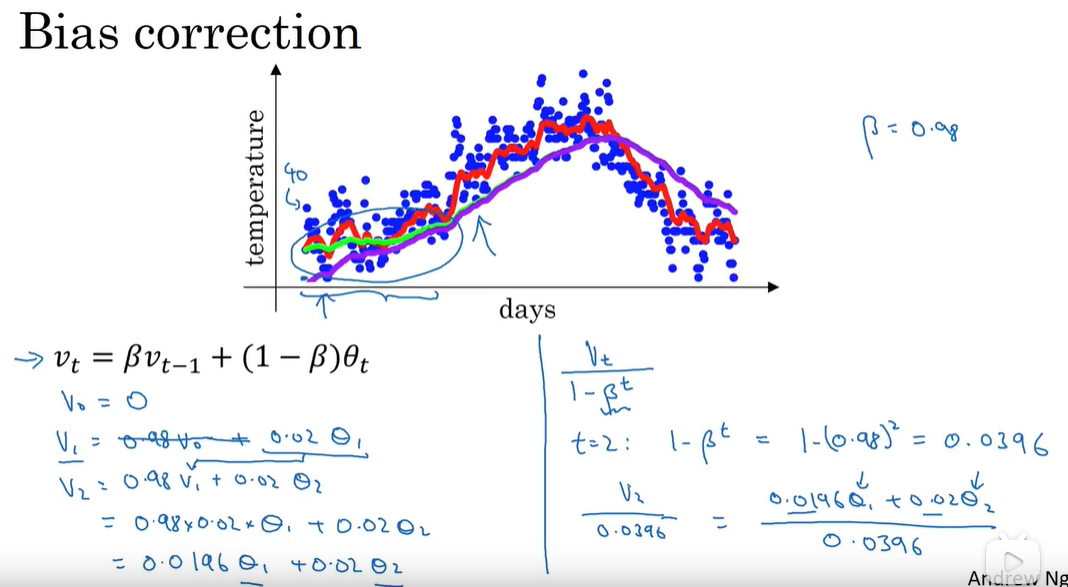 Bias correction
temperature
40
β = 0.98
days
→ vₜ = βvₜ₋₁ + (1 − β)θₜ
V₀ = 0
V₁ = 0.98 V₀ + 0.02 θ₁
V₂ = 0.98 V₁ + 0.02 θ₂
= 0.98 x 0.02 x θ₁ + 0.02 θ₂
= 0.0196 θ₁ + 0.02 θ₂
Vₜ
1 - βᵗ
t=2: 1 - βᵗ = 1-(0.98)² = 0.0396
V₂
0.0396
=
0.0196θ₁ + 0.02θ₂
0.0396
Andrew Ng